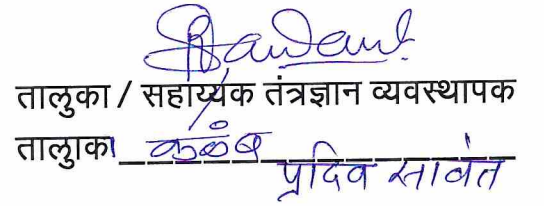 Sawant
तालुका / सहाय्यक तंत्रज्ञान व्यवस्थापक
तालुाका कळंब
प्रदिव सावंत